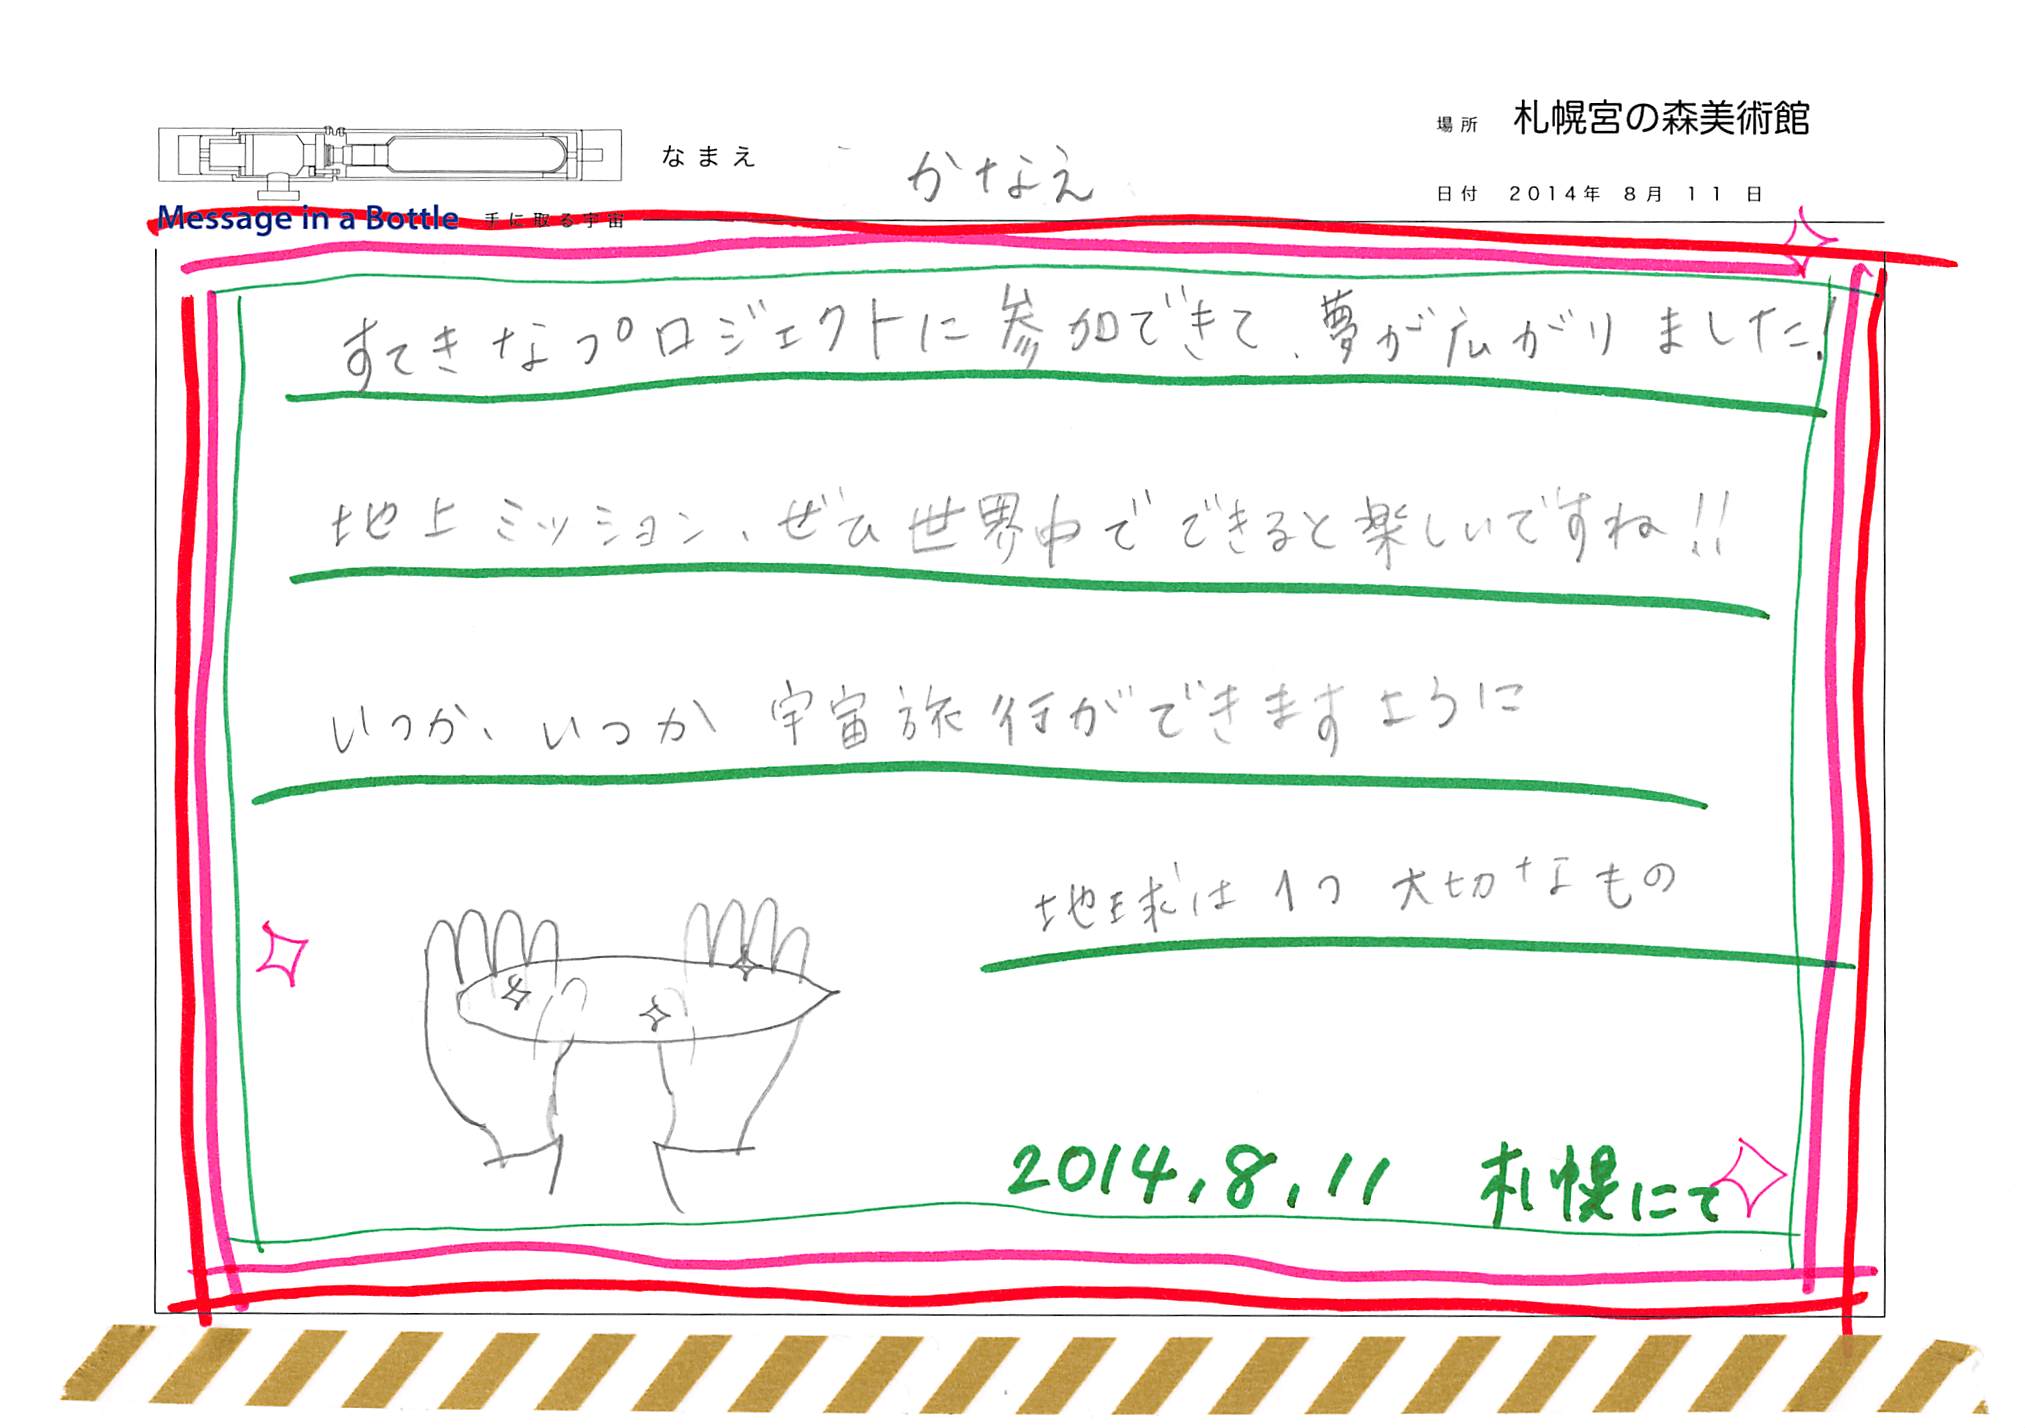 場所 札幌宮の森美術館
なまえ かなえ
日付 2014年 8月 11日
Message in a Bottle 手に取る宇宙
すてきなプロジェクトに参加できて、夢が広がりました!
地上ミッション、ぜひ世界中でできると楽しいですね!!
いつか、いつか 宇宙旅行ができますように
地球は1つ 大切なもの
2014,8,11 札幌にて